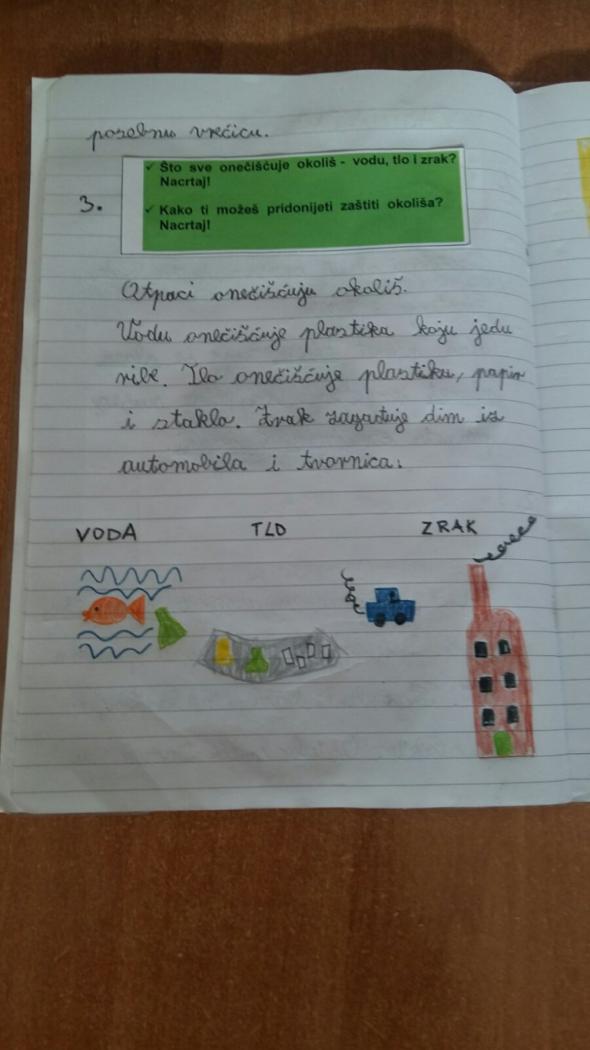 posebnu vrećicu.
3.
✓ Što sve onečišćuje okoliš - vodu, tlo i zrak?
Nacrtaj!
✓ Kako ti možeš pridonijeti zaštiti okoliša?
Nacrtaj!
Otpaci onečišćuju okoliš.
Vodu onečišćuje plastika koju jedu
ribe. Tlo onečišćuje plastika, papir
i stakla. Zrak zagađuje dim iz
automobila i tvornica.
VODA TLO ZRAK